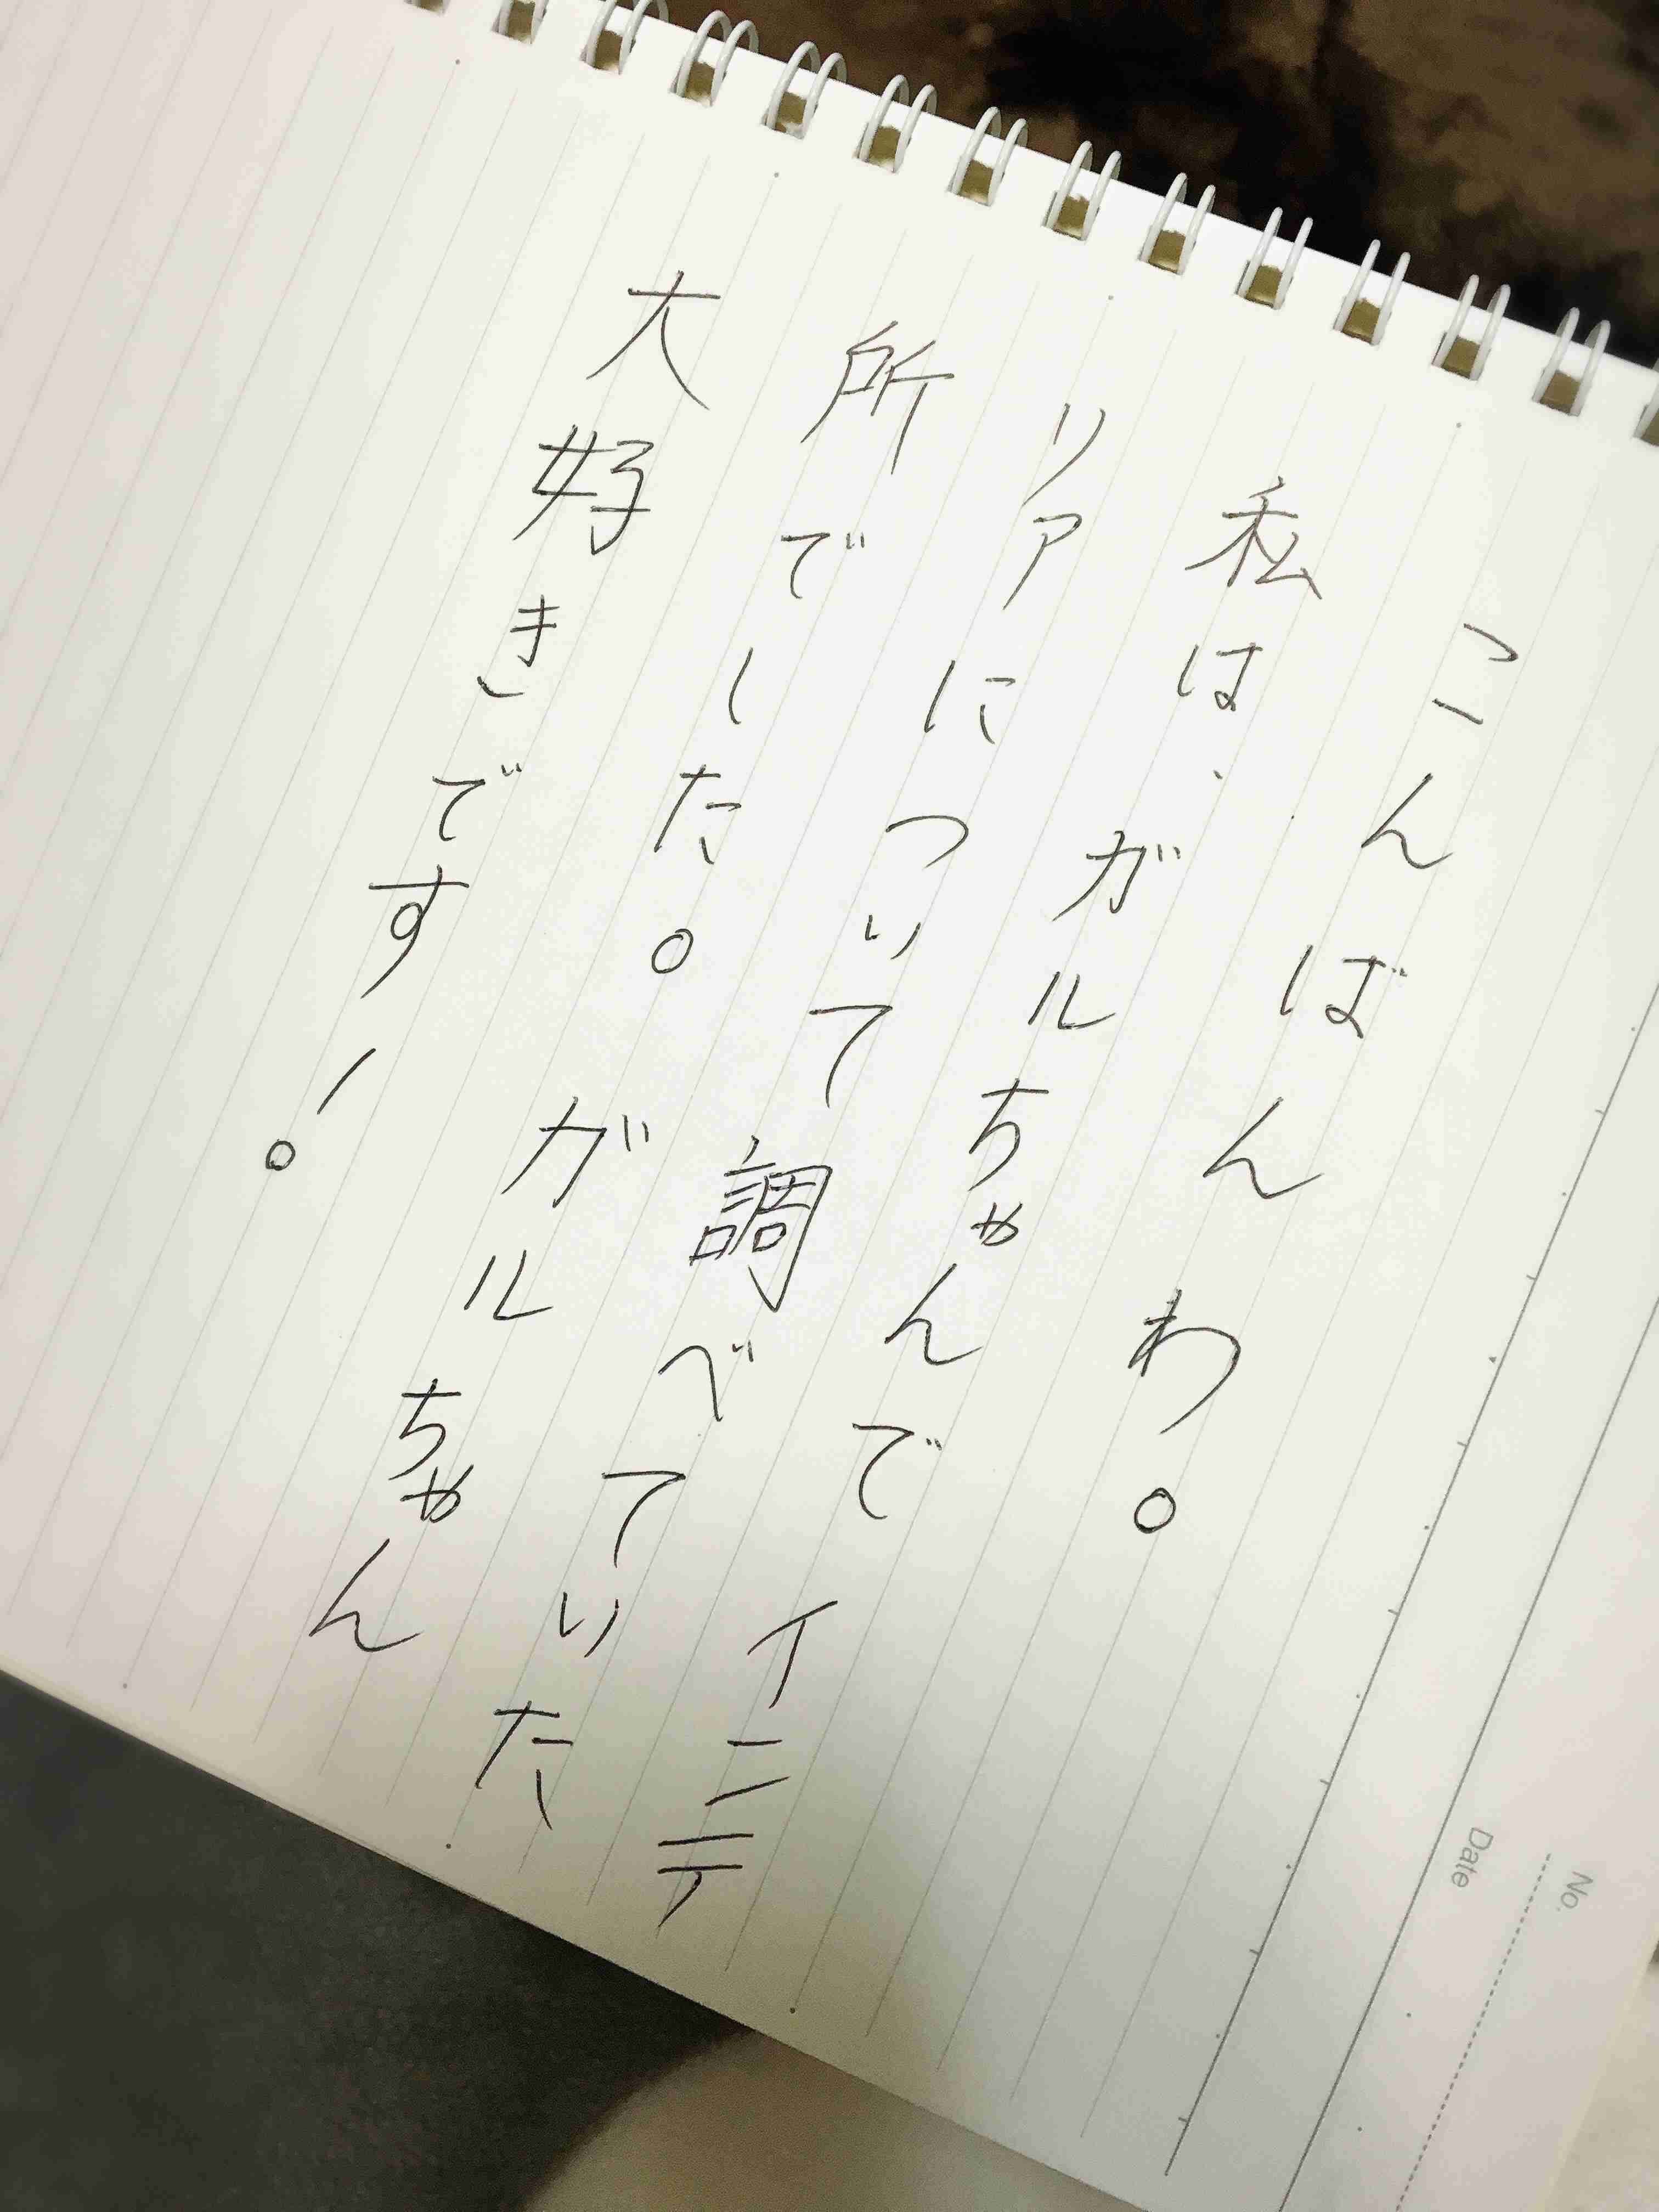 こんばんわ。
私は、ガルちゃんでインテ
リアについて調べていた
所でした。ガルちゃん
大好きです!。
No.
Date